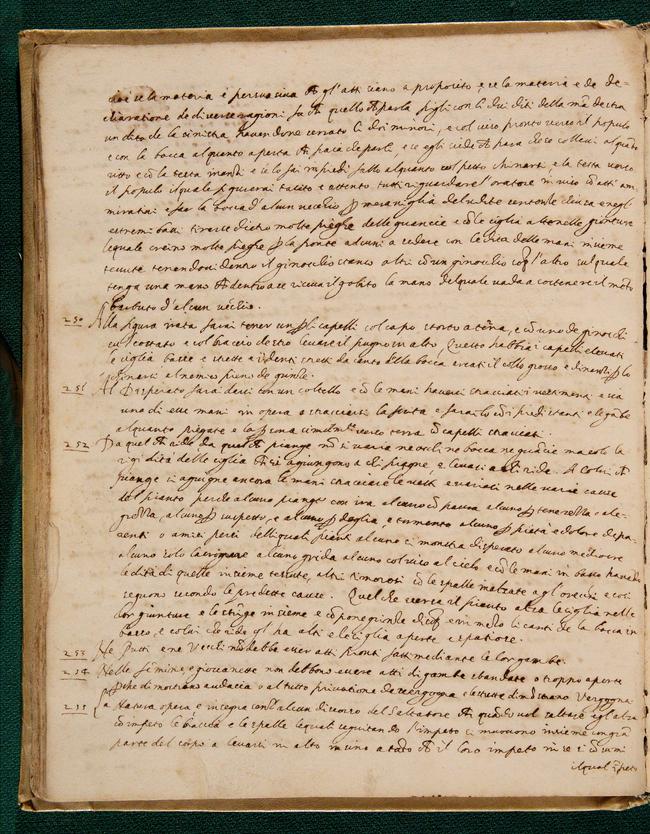 che se la materia è persuasiva che gl'atti siano a proposito, e se la materia è de de-
claratione de diverse ragioni fa che quello che parla pigli con li doi diti della ma destra
un dito de la sinistra havendone serrato li doi minori, e col viso pronto verso il populo
e con la bocca alquanto aperta che paia che parli e se egli siede che para che se collevi alquãto
ritto e cõ la testa inanzi e se lo fai in piedi fallo alquanto col petto chinarsi e la testa verso
il populo il quale figurerai tacito e attento tutti riguardare l'oratore in viso cõ atti am-
mirativi e far la bocca d'alcun vecchio p maraviglia delle udite sententie chiusa e negl'
estremi bassi tirarse dietro molte pieghe delle guancie e cõ le ciglia alte nelle gionture
le quale creino molte pieghe p la fronte alcuni a sedere con le dita delle mani insieme
tessute tenendovi dentro il ginocchio stanco altri cõ un ginocchio sop l'altro sul quale
tenga una mano che dentro a se riceva il gobito la mano del quale vada a sostenere il mẽto
barbuto d'alcun vecchio.
250 Alla figura irata farai tener un p li capelli col capo storto a terra, e cõ uno de ginocchi
sul costato e col braccio destro levare il pugno in alto, Questo habbia i capelli elevati
le ciglia basse e strette e i denti stretti da canto della bocca arcati il collo grosso e dinanzi p lo
chinarsi al nemico pieno de grinze.
251 Al Disperato farai darsi con un coltello e cõ le mani haversi stracciati i vestimenti e sia
una di esse mani in opera a stracciarsi la ferita e farailo cõ i piedi stanti e le gambe
alquanto piegate e la psona similmẽte verso terra cõ capelli stracciati.
252 Da quel che ride da quel che piange nõ si varia ne ochi ne bocca ne guancie ma solo la
rigidità delle ciglia che se agiungono a chi piagne, e levasi a chi ride. A colui che
piange s'agiugne ancora le mani stracciare le vesti e variati nelle varie cause
del pianto perche alcuno piange con ira alcuno cõ paura alcuno p tenerezza e ale-
grezza, alcuno p suspetto, e alcuno p doglia e tormento alcuno p pietà e dolore de pa-
renti o amici persi delli quali pianti alcuno si mostra disperato alcuno mediocre
alcuno solo lacrimare alcuno grida alcuno col viso al cielo e cõ le mani in basso havendo
le dita di quelle insieme tessute, altri timorosi cõ le spalle inalzate agl'orecchi e cosi
seguono secondo le predette cause. Quel che versa il pianto alza le ciglia nelle
lor gionture e le stringe insieme e cõpone grinze di sop e in mezo li canti de la bocca in
basso, e colui che ride gl'ha alti e le ciglia aperte e spatiose.
253 Ne Putti e ne Vecchi nõ debba esser atti pronti fatti mediante le lor gambe.
254 Nelle femine e giovanette non debbono essere atti di gambe sbandate o troppo aperte
perche dimostrano audacia o al tutto privatione de vergogna e le strette dimostrano Vergogna
255 La Natura opera e insegna senz'alcun discorso del Saltatore che quãdo vol saltare egl'alza
cõ impeto le braccia e le spalle le quali seguitando l'impeto si muovono insieme con grã
parte del corpo a levarsi in alto insino a tãto che il loro impeto in se si cõsumi
il qual ĩpeto